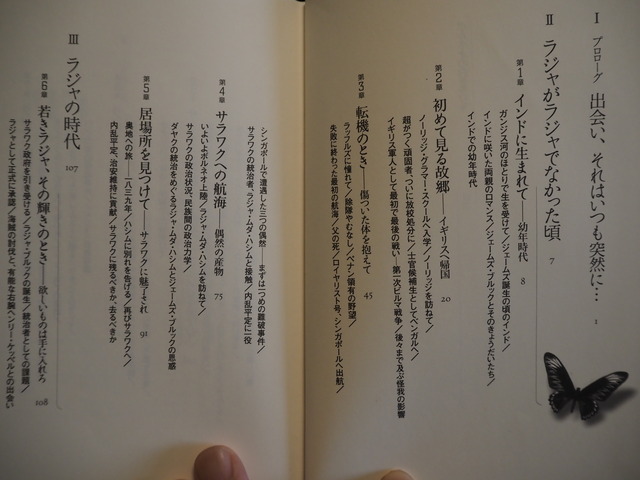 I プロローグ 出会い、それはいつも突然に… 1
II ラジャがラジャでなかった頃 7
第1章 インドに生まれて——幼年時代 8
ガンジス河のほとりで生を受けて／ジェームズ誕生の頃のインド／
インドに咲いた両親のロマンス／ジェームズ・ブルックとそのきょうだいたち／
インドでの幼年時代
第2章 初めて見る故郷——イギリス帰国 20
ノーリッジ・グラマー・スクールへ入学／ノーリッジを訪ねて／
超がつく頑固者、ついに放校処分に／士官候補生としてベンガルへ／
イギリス軍人として最初で最後の戦い——第一次ビルマ戦争／後々まで及ぶ怪我の影響
第3章 転機のとき——傷ついた体を抱えて 45
ラッフルズに憧れて／除隊やむなし／ペナン領有の野望／
失敗に終わった最初の航海／父の死／ロイヤリスト号、シンガポールへ出航／
シンガポールで遭遇した三つの偶然——まずは一つめの難破事件／
サラワクの統治者、ラジャ・ムダ・ハシムと接触／内乱平定に役
第4章 サラワクへの航海——偶然の産物 75
いよいよボルネオ上陸／ラジャ・ムダ・ハシムを訪ねて／
サラワクの政治状況、民族間の政治力学／
ダヤクの統治をめぐるラジャ・ムダ・ハシムとジェームズ・ブルックの思惑
第5章 居場所を見つけて——サラワクに魅せられ 91
奥地への旅——一八三九年／ハシムに別れを告げる／再びサラワクへ／
内乱平定、治安維持に貢献／サラワクに残るべきか、去るべきか
III ラジャの時代 107
第6章 若きラジャ、その輝きのとき——欲しいものは手に入れろ 108
サラワク政府を引き受ける／ラジャ・ブルックの誕生／統治者としての課題／
ラジャとして正式に承認／海賊の討伐と、有能な右腕ヘンリー・ケッペルとの出会い